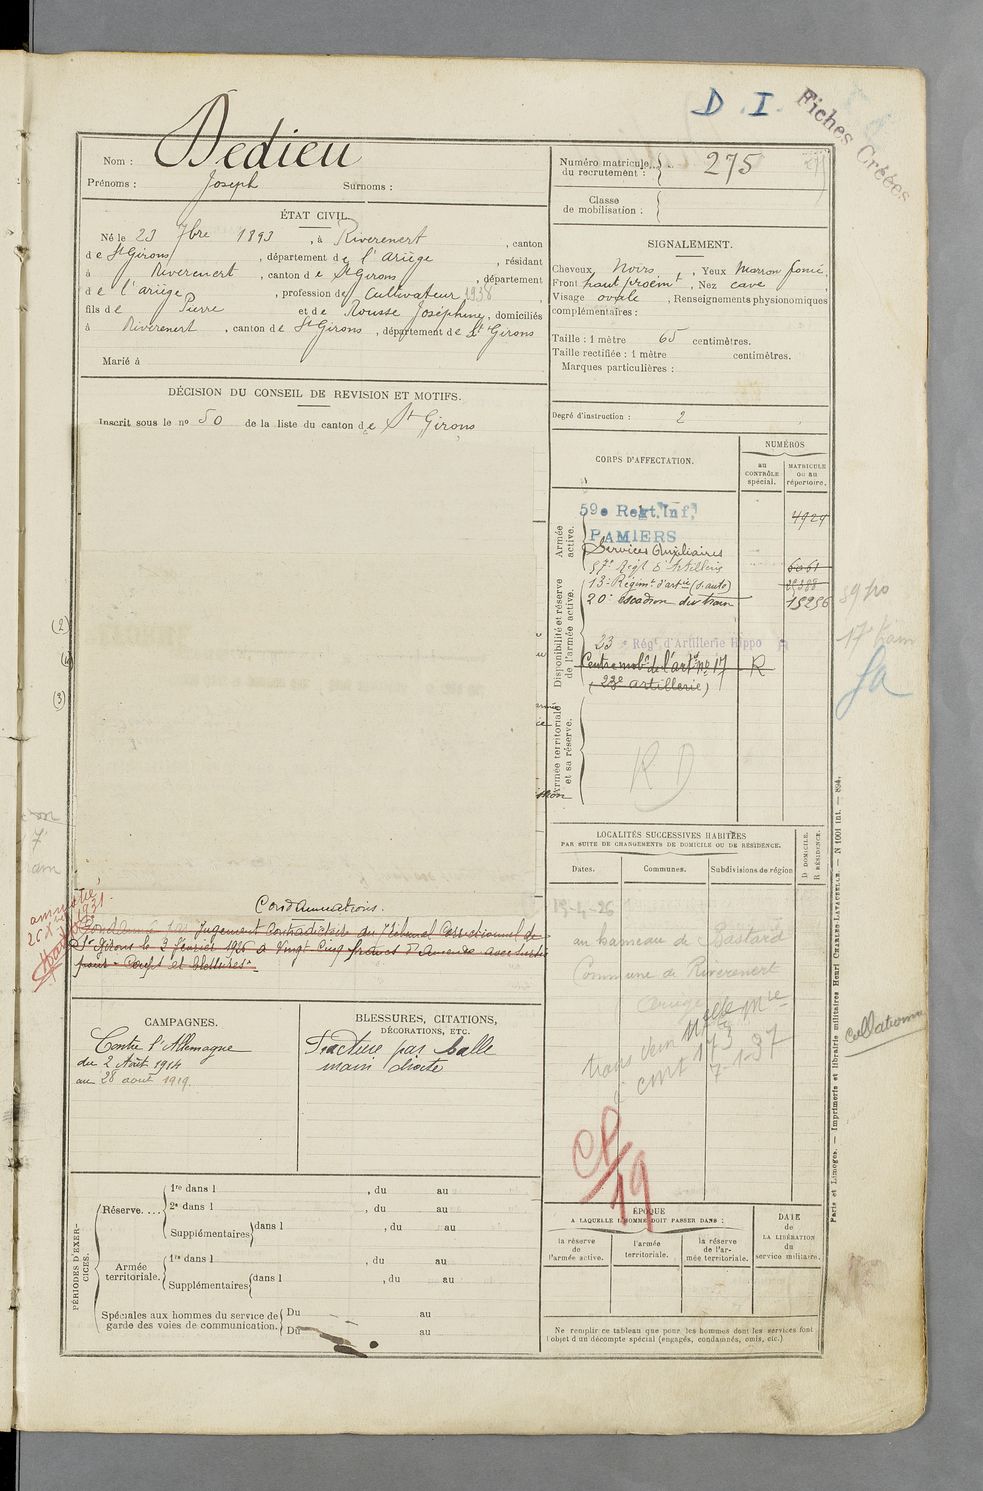 D. I.
Fiches Créées
Nom : Dedieu
Prénoms : Joseph Surnoms :
Numéro matricule du recrutement : 275
Classe de mobilisation :
ÉTAT CIVIL.
Né le 23 7bre 1893, à Riverenert, canton
de St Girons, département de l'Ariège, résidant
à Riverenert, canton de St Girons, département
de l'ariège, profession de Cultivateur 1938,
fils de Pierre et de Rousse Joséphine, domiciliés
à Riverenert, canton de St Girons, département de St Girons
Marié à
SIGNALEMENT.
Cheveux Noirs, Yeux Marron foncé,
Front haut proémt, Nez cave
Visage ovale, Renseignements physionomiques
complémentaires :
Taille : 1 mètre 65 centimètres.
Taille rectifiée : 1 mètre centimètres.
Marques particulières :
Degré d'instruction : 2
DÉCISION DU CONSEIL DE REVISION ET MOTIFS.
Inscrit sous le no 50 de la liste du canton de St Girons
(2)
(3)
CORPS D'AFFECTATION.
NUMÉROS
au CONTRÔLE spécial.
MATRICULE ou au répertoire.
Armée active.
59e Regt. Inf. 4924
PAMIERS
Services Auxiliaires
57e Régt d'Artillerie 6061
Disponibilité et réserve de l'armée active.
13e Régimt d'artie (s. auto)
20e escadron du train 15256
23e Régt. d'Artillerie Hippo R
Centre mobe de l'artie no 17 R
(23e artillerie)
Armée territoriale et sa réserve.
R D
17e
Condamnations.
amnistié
Condamné par Jugement Contradictoire du Tribunal Correctionnel de
St Girons le 2 février 1916 à Vingt Cinq francs d'Amende avec sursis
pour "Coups et blessures".
LOCALITÉS SUCCESSIVES HABITÉES
PAR SUITE DE CHANGEMENTS DE DOMICILE OU DE RÉSIDENCE.
Dates. Communes. Subdivisions de région
D DOMICILE.
R RÉSIDENCE.
19-4-26
au hameau de Bastard
Commune de Riverenert
Ariège
Nelle Mle
cont 173
7-1-37
CP/19
collationné
CAMPAGNES.
Contre l'Allemagne
du 2 Août 1914
au 28 aout 1919.
BLESSURES, CITATIONS,
DÉCORATIONS, ETC.
Fracture par balle
main droite
PÉRIODES D'EXERCICES.
Réserve....
1re dans l , du au
2e dans l , du au
Supplémentaires dans l , du au
Armée territoriale.
1re dans l , du au
Supplémentaires dans l , du au
Spéciales aux hommes du service de garde des voies de communication.
Du au
Du au
ÉPOQUE
A LAQUELLE L'HOMME DOIT PASSER DANS :
la réserve de l'armée active.
l'armée territoriale.
la réserve de l'armée territoriale.
DATE de LA LIBÉRATION du service militaire.
Ne remplir ce tableau que pour les hommes dont les services font
l'objet d'un décompte spécial (engagés, condamnés, omis, etc.)
Paris et Limoges. — Imprimerie et librairie militaires Henri CHARLES-LAVAUZELLE. — N 1001 int. — 894.